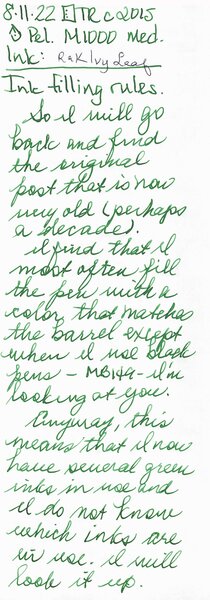 8.11.22 ETRc2015
Pel. M1000 med.
Ink: R&K Ivy Leaf
Ink filling rules.
So I will go
back and find
the original
post that is now
very old (perhaps
a decade).
I find that I
most often fill
the pen with a
color that matches
the barrel except
when I use black
pens - MB149 - I'm
looking at you.
Anyway, this
means that I now
have several green
inks in use and
I do not know
which inks are
in use. I will
look it up.